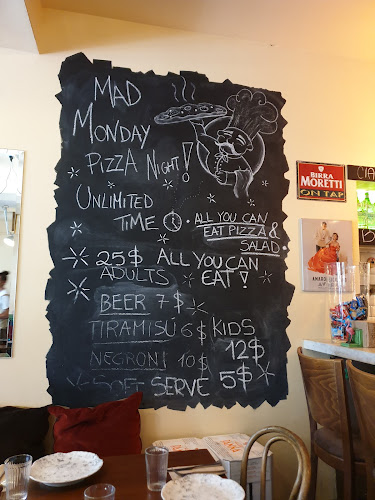 MAD
MONDAY
PIZZA NIGHT!
UNLIMITED
TIME
ALL YOU CAN
EAT PIZZA &
SALAD
25$ ALL YOU CAN
ADULTS EAT!
BEER 7$
TIRAMISÙ 6$ KIDS
NEGRONI 10$ 12$
SOFT SERVE 5$
BIRRA
MORETTI
ON TAP
CIA